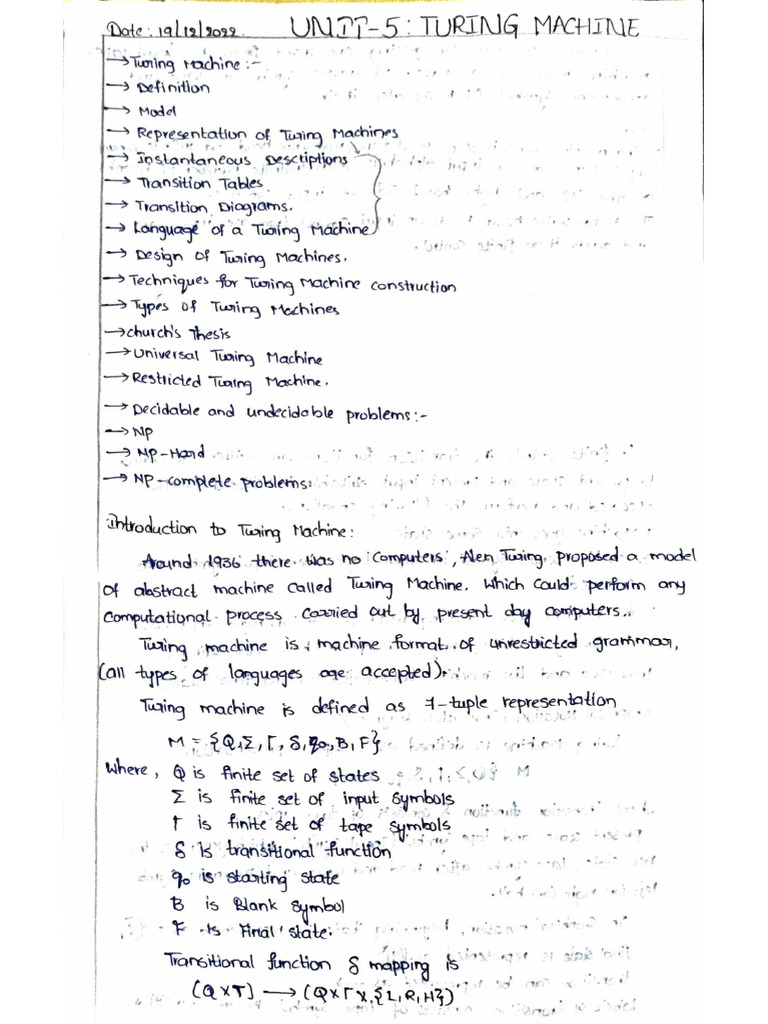 Date: 19/12/2022. UNIT-5: TURING MACHINE
→ Turing Machine :-
→ Definition
→ Model
→ Representation of Turing Machines
→ Instantaneous Descriptions
→ Transition Tables.
→ Transition Diagrams.
→ Language of a Turing Machine
→ Design of Turing Machines.
→ Techniques for Turing Machine construction
→ Types of Turing Machines
→ church's Thesis
→ Universal Turing Machine
→ Restricted Turing Machine.
→ Decidable and undecidable problems:-
→ NP
→ NP-Hard
→ NP-complete problems.
Introduction to Turing Machine:
Around 1936 there was no 'computers', Alen Turing proposed a model
of abstract machine called Turing Machine. Which could perform any
computational process carried out by present day computers..
Turing machine is machine format of unrestricted grammar,
(all types of languages are accepted).
Turing machine is defined as 7-tuple representation
M = {Q, Σ, Γ, δ, q0, B, F}
Where, Q is finite set of states
Σ is finite set of input symbols
Γ is finite set of tape symbols
δ is transitional function
q0 is starting state
B is Blank symbol
F is Final state.
Transitional function δ mapping is
(Q×Γ) → (Q×Γ×{L,R,H})